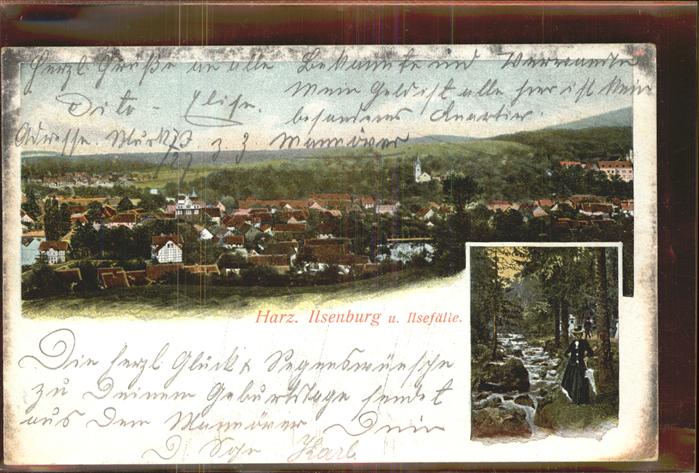 Herzl. Grüße an alle Bekannte und Verwandte
Dito - Elise. Mein Geld ist alle hier ist kein
besonderes Quartier.
Adresse. Musk 73 Manöver
3
Harz. Ilsenburg u. Ilsefälle.
Die herzl. Glück & Segenswünsche
zu Deinem Geburtstage sendet
aus dem Manöver Dein
Karl